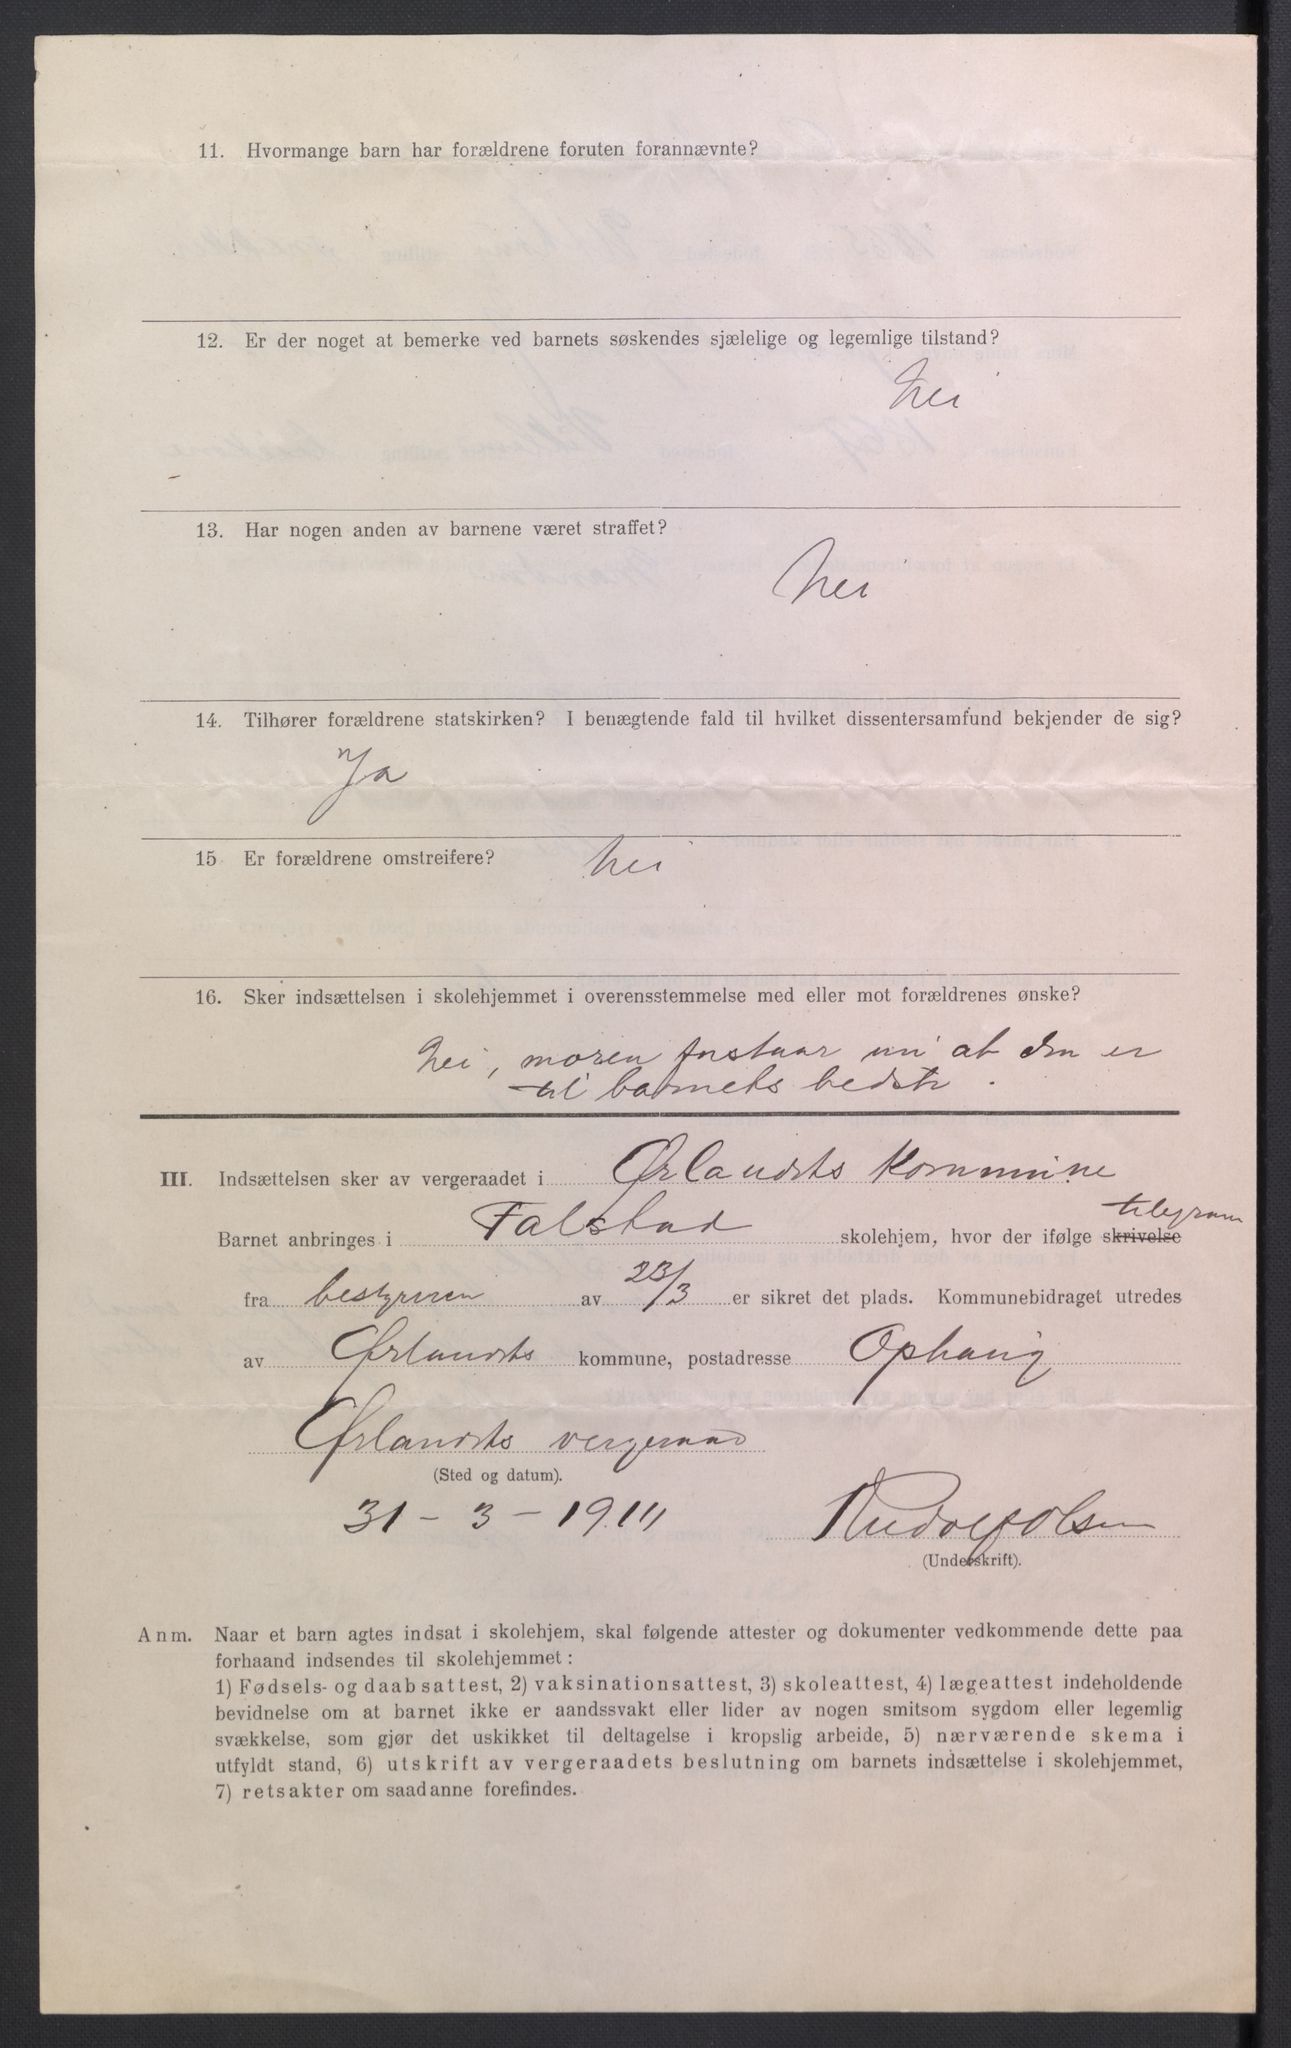 11. Hvormange barn har forældrene foruten forannævnte?
12. Er der noget at bemerke ved barnets søskendes sjælelige og legemlige tilstand?
Nei
13. Har nogen anden av barnene været straffet?
Nei
14. Tilhører forældrene statskirken? I benægtende fald til hvilket dissentersamfund bekjender de sig?
Ja
15 Er forældrene omstreifere? Nei
16. Sker indsættelsen i skolehjemmet i overensstemmelse med eller mot forældrenes ønske?
Nei, moren forstaar at den er
til barnets bedste.
III. Indsættelsen sker av vergeraadet i Ørlandets Kommune
telegram
Barnet anbringes i Falstad skolehjem, hvor der ifølge skrivelse
fra bestyreren av 23/3 er sikret det plads. Kommunebidraget utredes
av Ørlandets kommune, postadresse Ophaug
Ørlandets vergeraad
(Sted og datum).
31 - 3 - 1911 Rudolf Olsen
(Underskrift).
Anm. Naar et barn agtes indsat i skolehjem, skal følgende attester og dokumenter vedkommende dette paa
forhaand indsendes til skolehjemmet:
1) Fødsels- og daabsattest, 2) vaksinationsattest, 3) skoleattest, 4) lægeattest indeholdende
bevidnelse om at barnet ikke er aandssvakt eller lider av nogen smitsom sygdom eller legemlig
svækkelse, som gjør det uskikket til deltagelse i kropslig arbeide, 5) nærværende skema i
utfyldt stand, 6) utskrift av vergeraadets beslutning om barnets indsættelse i skolehjemmet,
7) retsakter om saadanne forefindes.